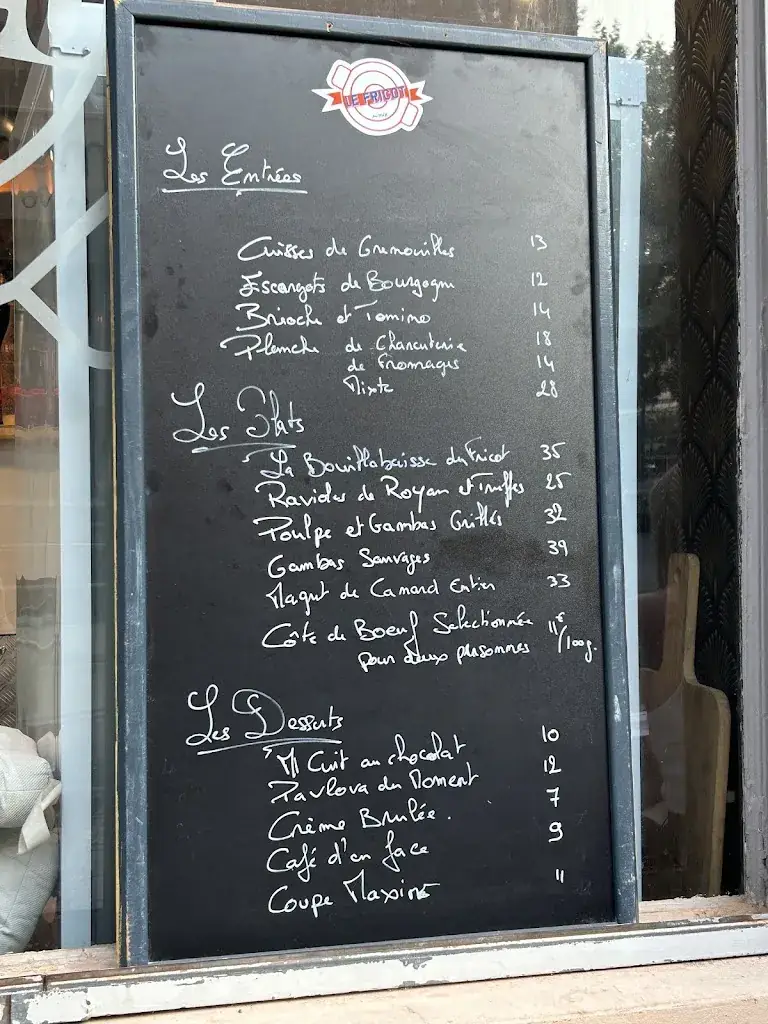 LE FRICOT
Les Entrées
Cuisses de Grenouilles 13
Escargots de Bourgogne 12
Brioche et Tomino 14
Planche de Charcuterie 18
de Fromages 14
Mixte 28
Les Plats
La Bouillabaisse du Fricot 35
Ravioles de Royan et Truffes 25
Poulpe et Gambas Grillés 32
Gambas Sauvages 39
Magret de Canard Entier 33
Côte de Boeuf Selectionnée 11€/100g.
pour deux personnes
Les Desserts
Mi Cuit au chocolat 10
Pavlova du Moment 12
Crème Brulée. 7
Café d'en face 9
Coupe Maxime 11